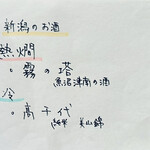 新潟のお酒
熱燗
・霧の塔
魚沼津南の酒
冷
・高千代
純米 美山錦